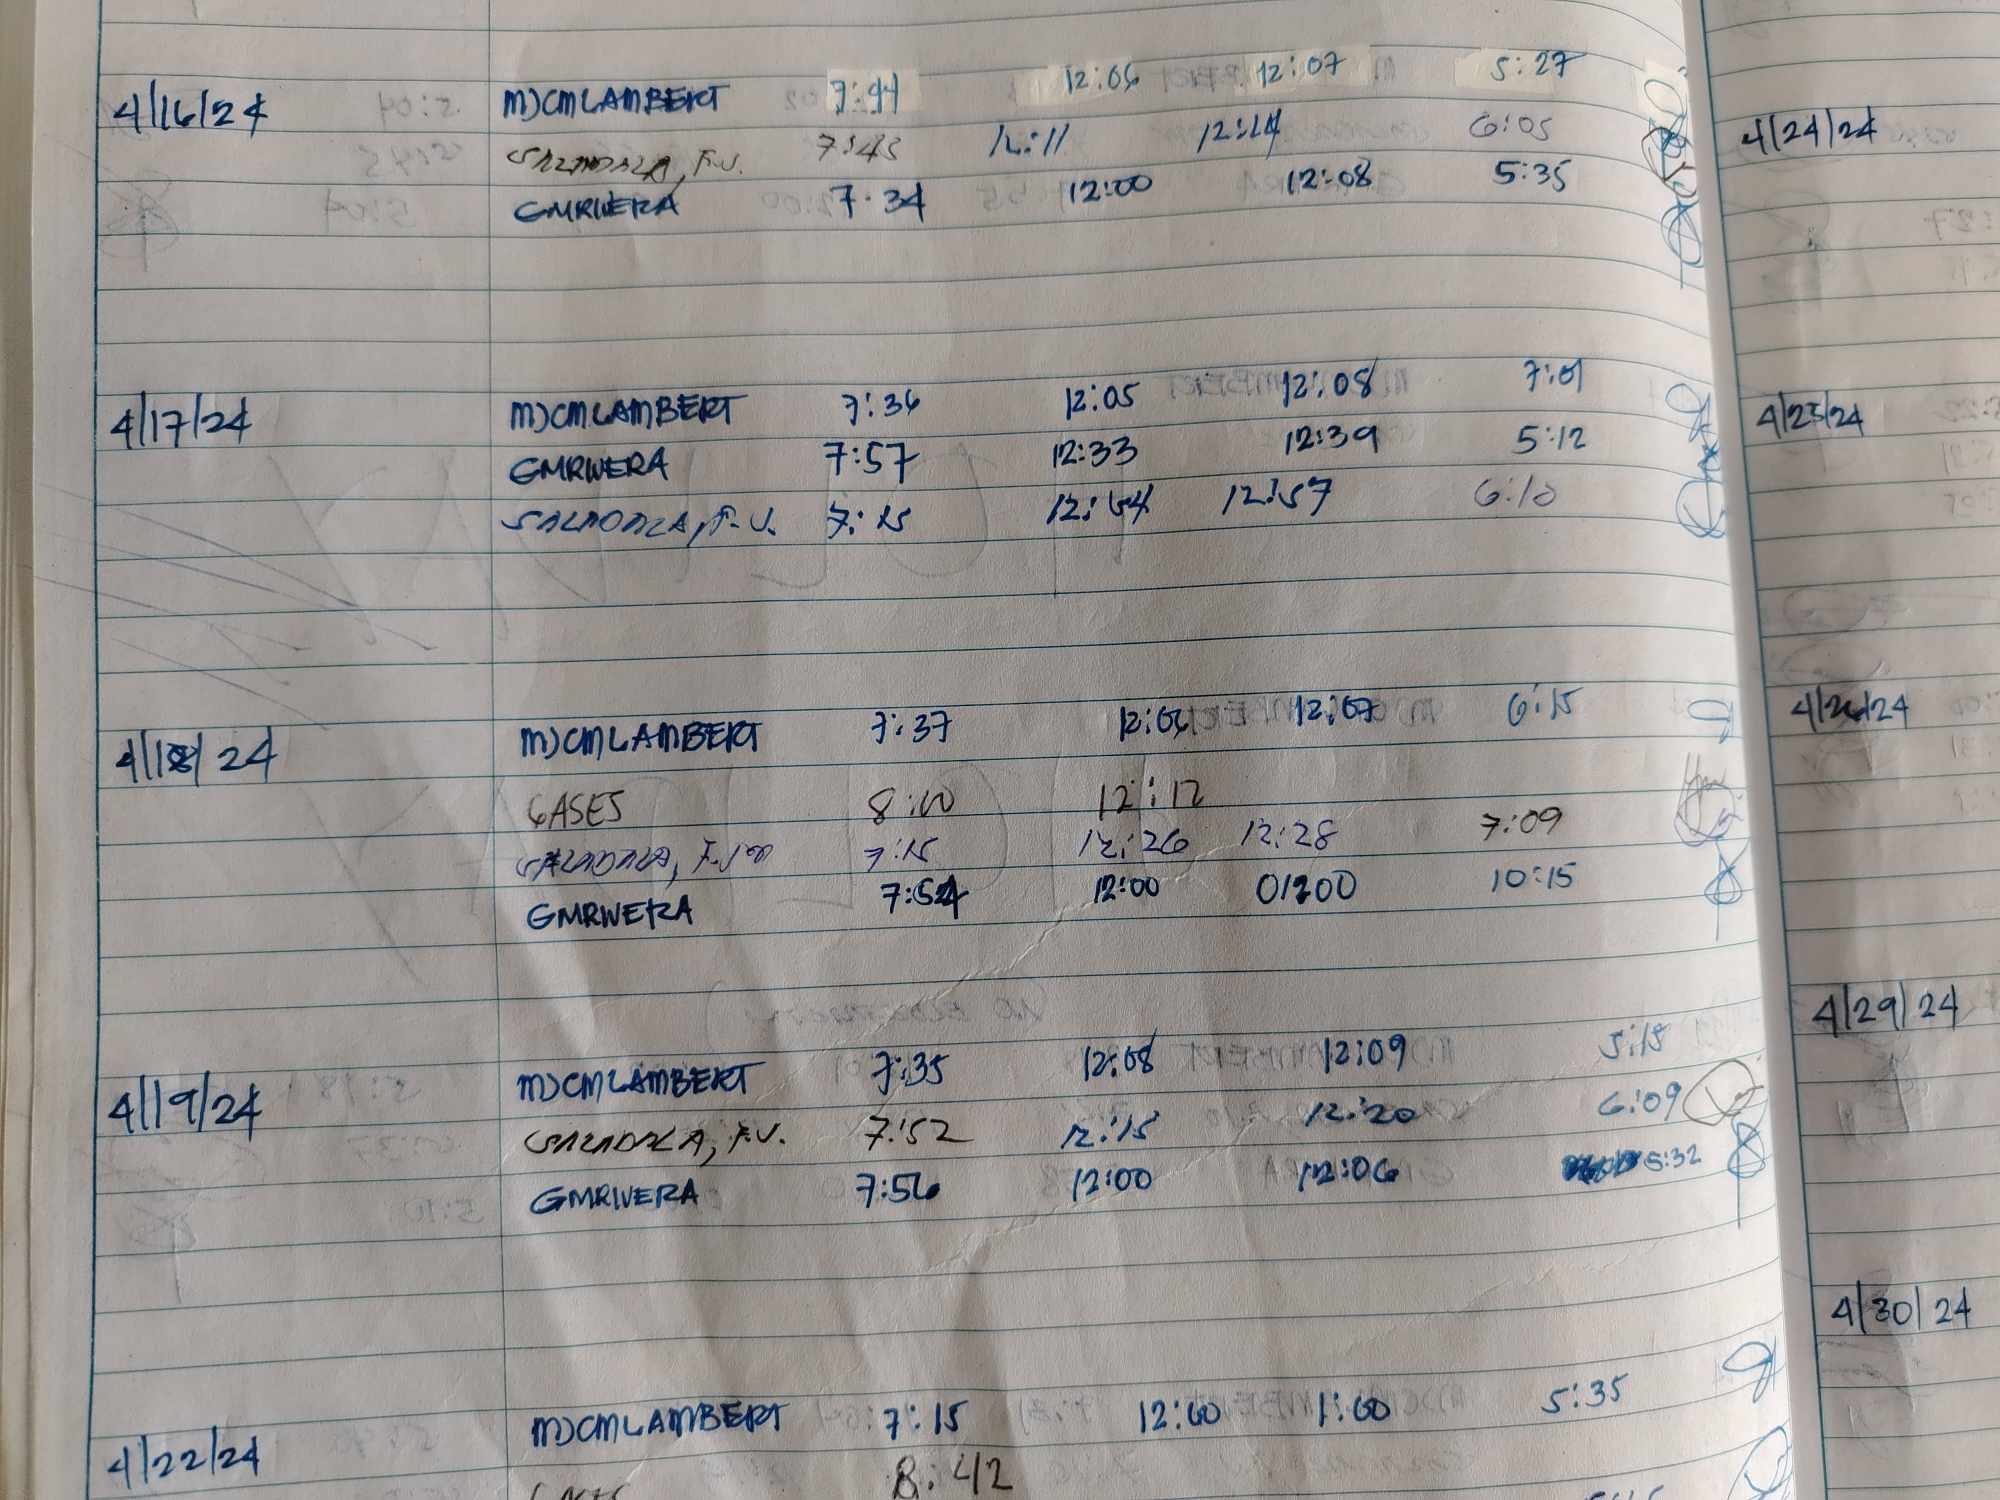 4/16/24 MJCMLAMBERT 7:44 12:06 12:07 5:27
SALADAZA, F.V. 7:43 12:11 12:14 6:05
GMRIVERA 7:34 12:00 12:08 5:35
4/17/24 MJCMLAMBERT 7:36 12:05 12:08 7:01
GMRIVERA 7:57 12:33 12:39 5:12
SALADAZA, F.V. 7:15 12:54 12:57 6:10
4/18/24 MJCMLAMBERT 7:37 12:06 12:07 6:15
GASES 8:10 12:12
7:15 12:26 12:28 7:09
GMRIVERA 7:54 12:00 01200 10:15
4/19/24 MJCMLAMBERT 7:35 12:08 12:09 5:15
SALADAZA, F.V. 7:52 12:15 12:20 6:09
GMRIVERA 7:56 12:00 12:06 5:32
4/22/24 MJCMLAMBERT 7:15 12:00 1:00 5:35
8:42
4/24/24
4/25/24
4/26/24
4/29/24
4/30/24